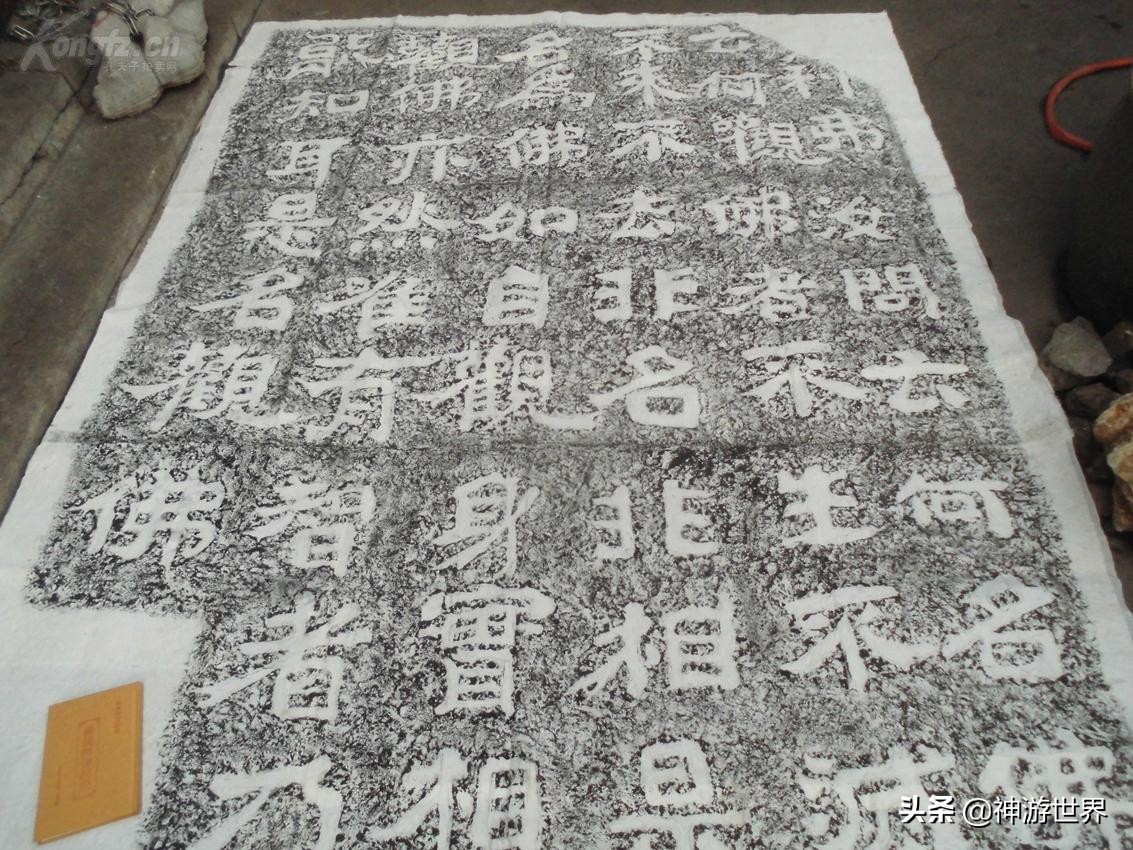 利弗汝問云何名佛
云何觀佛者不生不滅
不來不去非名非相是
名為佛如自觀身實相
觀佛亦然唯有智者乃
能知耳是名觀佛
Kongfz.cn
孔夫子拍卖网
头条 @神游世界